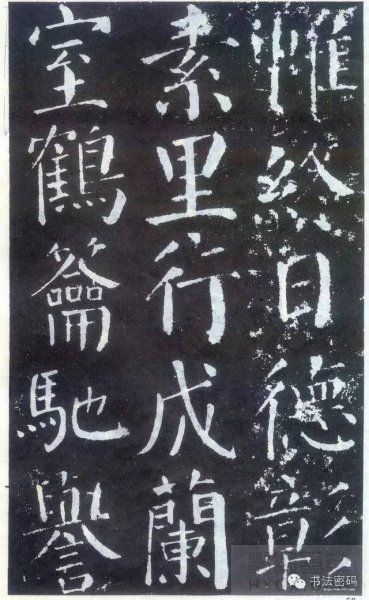 帷終日德彰
素里行成蘭
室鶴籥馳譽
书法密码